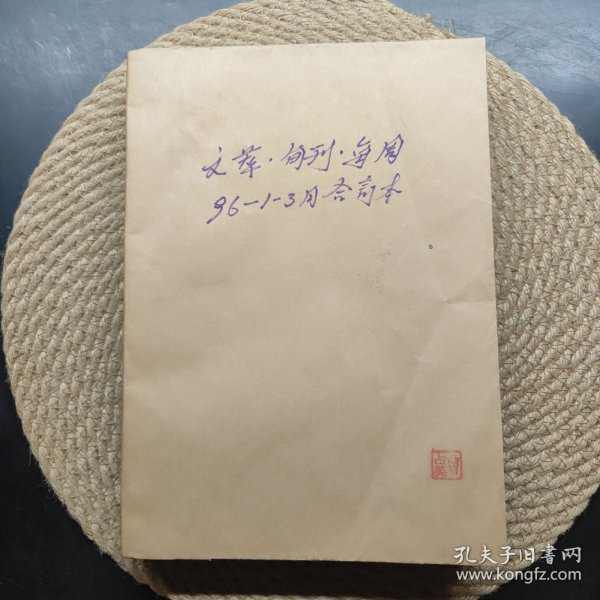 文萃·旬刊·每周
96-1-3月合訂本
孔夫子旧书网
www.kongfz.com